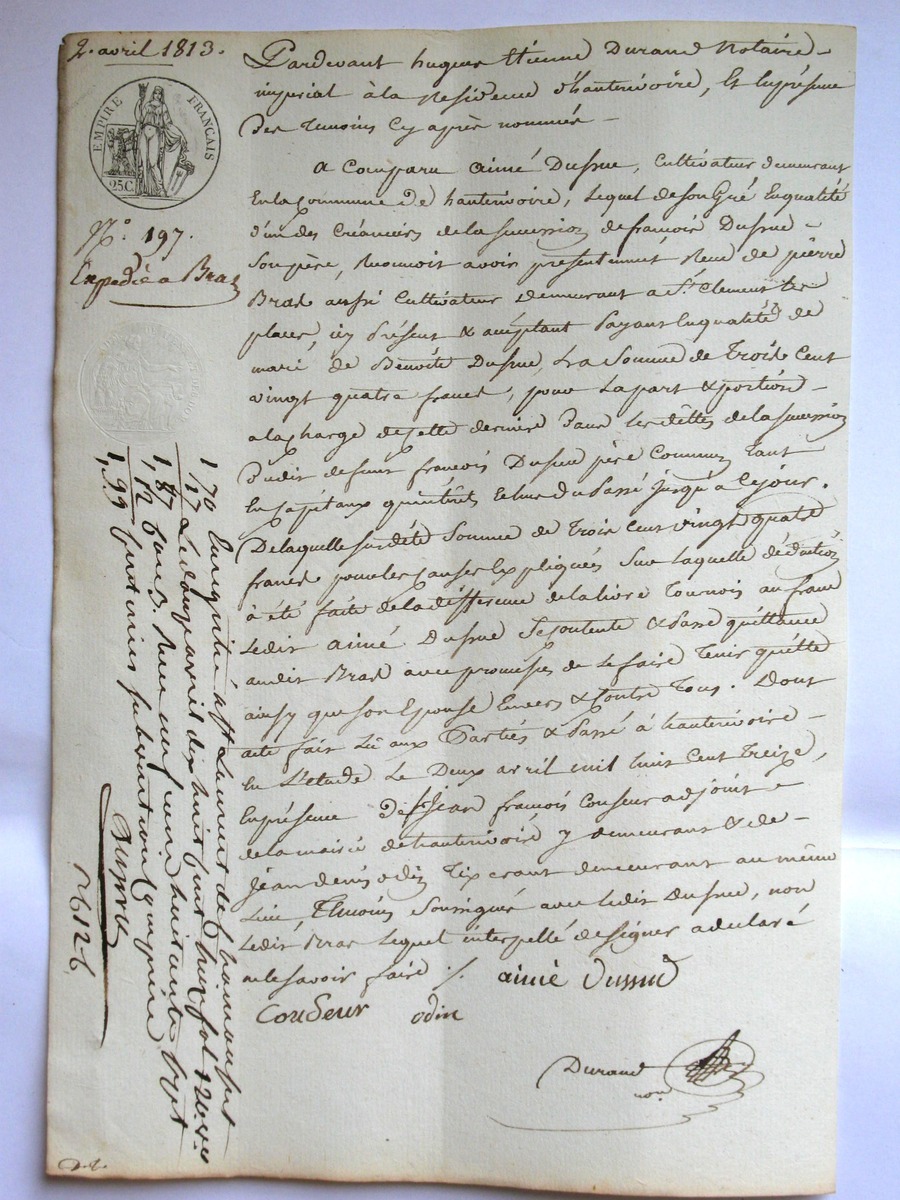 2. avril 1813.
EMPIRE FRANÇAIS
25C
N.° 197.
Expédié a Bras
Pardevant hugues Etienne Durand Notaire
imperial à la Residence d'hauterivoire, Et Enpresence
des temoins Cy après nommés
A Comparu aimé Dussud, Cultivateur demeurant
En la Commune de hauterivoire, Lequel de son Gré En qualité
d'un des Créanciers de la succession de françois Dussud
son père, Reconnoit avoir presentement Receu de pierre
Bras aussi Cultivateur demeurant a St. Clement les
places, icy Présent & acceptant Payant En qualité de
marié de Benoite Dussud, La Somme de Trois Cent
vingt quatre francs, pour La part & portion
a la charge de Cette derniere Dans les dettes de la succession
Dudit defunt françois Dussud père Commun, tant
En Capitaux qu'intérêts Echus du Passé jusqu'a Ce jour.
De laquelle susdite Somme de trois Cent vingt quatre
francs pour les Causes Expliquées Sur laquelle déduction
à été faite de la différence de la livre Tournois au franc
Ledit aimé Dussud Se Contente & Passe quittance
audit Bras avec promesses de Le faire Tenir quitte
ainsy que son Epouse Envers & Contre Tous. Dont
acte fait Lû aux Parties & Passé à hauterivoire
En L'étude Le Deux avril mil huit Cent Treize,
En presence de Sr. Jean françois Couseur adjoint
de la mairie de hauterivoire y demeurant & de
Jean denis odin Tixerant demeurant au même
Lieu Temoins Soussignés avec Ledit Dussud, non
Ledit Bras Lequel interpellé de signer a declaré
ne le savoir faire ./.
aimé Dussud
Couseur odin
Durand
nore.
Enregistré à St Laurent de Chamousset
Le douze avril dix huit cent treize fol 120
Reçu un franc huitante sept
centimes subvention comprise
1 70
17
1, 87
1, 12
1, 99
2612-6